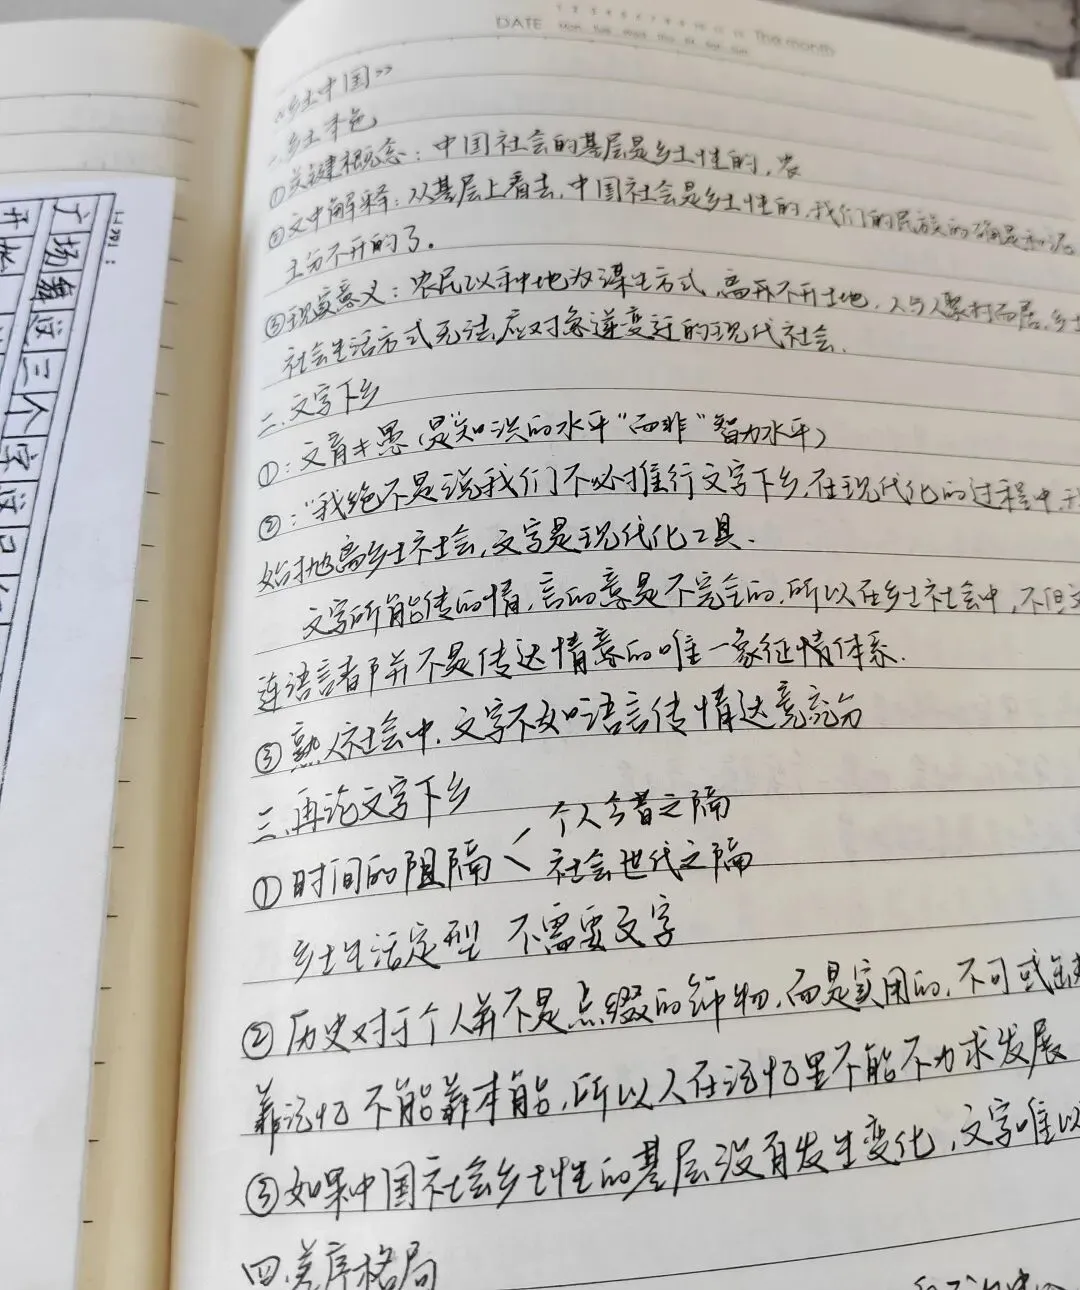 DATE
Mon Tue Wed Thu Fri Sat Sun
This month
《乡土中国》
一.乡土本色
①关键概念：中国社会的基层是乡土性的，农
②文中解释：从基层上看去，中国社会是乡土性的，我们的民族的确是和泥
土分不开的了。
③现实意义：农民以种地为谋生方式，离开不开土地，人与人聚村而居，乡土
社会生活方式无法应对急遽变迁的现代社会.
二.文字下乡
①：文盲≠愚（是"知识的水平"而非"智力水平）
②："我绝不是说我们不必推行文字下乡，在现代化的过程中，
始抛离乡土社会，文字是现代化工具.
文字所能传的情，言的意是不完全的，所以在乡土社会中，不但文
连语言都并不是传达情意的唯一象征情体系.
③熟人社会中，文字不如语言传情达意充分
三.再论文字下乡
①时间的阻隔<
个人今昔之隔
社会世代之隔
乡土生活定型 不需要文字
②历史对于个人并不是点缀的饰物，而是实用的，不可或缺
靠记忆不能靠本能，所以人在记忆里不能不力求发展
③如果中国社会乡土性的基层没有发生变化，文字唯以
四.差序格局
广场舞这三个字